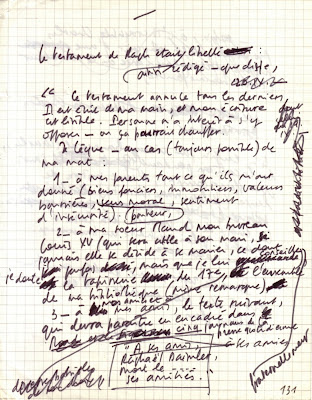 Le testament de Raph était libellé :
ainsi rédigé
" Ce testament annule tous les derniers,
Il est écrit de ma main, et mon écriture
est lisible. Personne n'a intérêt à s'y
opposer – ou ça pourrait chauffer.
Je lègue – au cas (toujours possible) de
ma mort :
1 – à mes parents tout ce qu'ils m'ont
donné (biens fonciers, immobiliers, valeurs
boursières, sens moral, sentiment
d'insécurité). pudeur,
2 – à ma soeur Maud mon bureau
Louis XV (qui sera utile à son mari, si
jamais elle se décide à se marier, ce dont
je doute mais que je lui conseille
la tapinerie 17e, et l'ensemble
de ma bibliothèque (même remarque)
3 – à mes amis, le texte suivant,
qui devra paraître en encadré dans
cinq journaux de la
presse quotidienne
" A ses amis,
Raphaël Daimler,
mort de
ses amitiés.
à ses amis
fraternellement
131